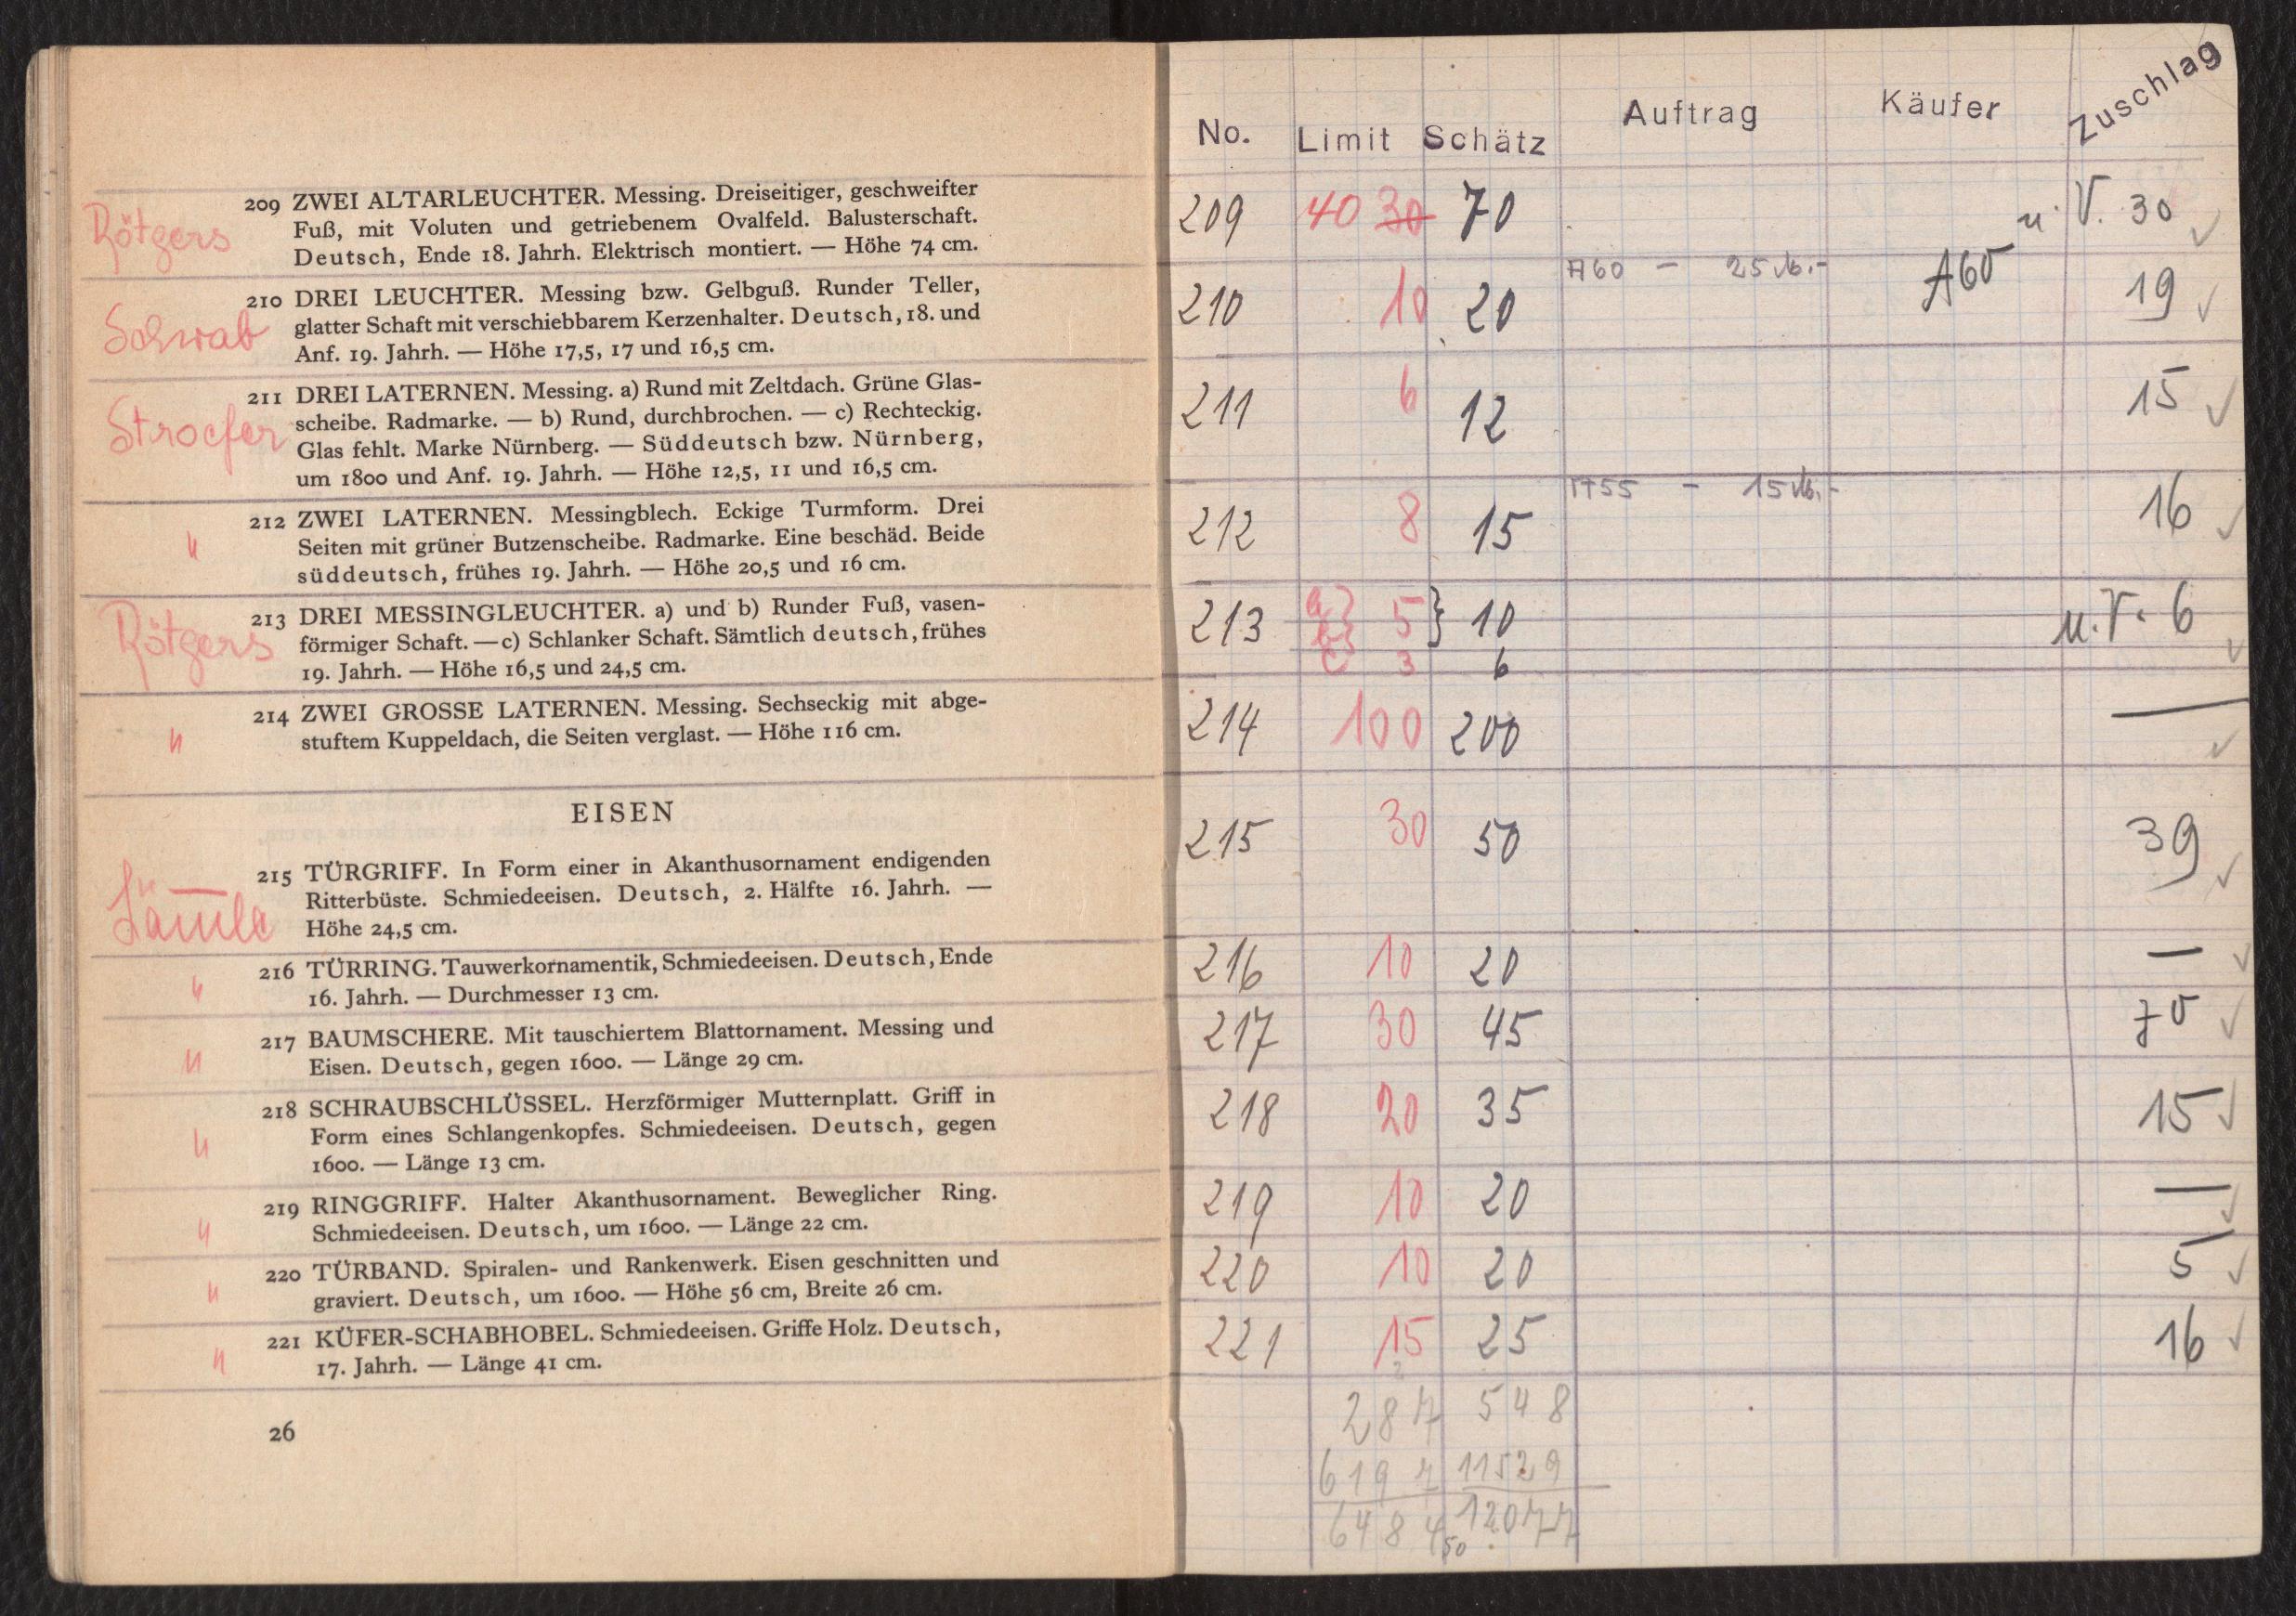 Rötgers
209 ZWEI ALTARLEUCHTER. Messing. Dreiseitiger, geschweifter
Fuß, mit Voluten und getriebenem Ovalfeld. Balusterschaft.
Deutsch, Ende 18. Jahrh. Elektrisch montiert. — Höhe 74 cm.
Schwab
210 DREI LEUCHTER. Messing bzw. Gelbguß. Runder Teller,
glatter Schaft mit verschiebbarem Kerzenhalter. Deutsch, 18. und
Anf. 19. Jahrh. — Höhe 17,5, 17 und 16,5 cm.
Stroefer
211 DREI LATERNEN. Messing. a) Rund mit Zeltdach. Grüne Glas-
scheibe. Radmarke. — b) Rund, durchbrochen. — c) Rechteckig.
Glas fehlt. Marke Nürnberg. — Süddeutsch bzw. Nürnberg,
um 1800 und Anf. 19. Jahrh. — Höhe 12,5, 11 und 16,5 cm.
"
212 ZWEI LATERNEN. Messingblech. Eckige Turmform. Drei
Seiten mit grüner Butzenscheibe. Radmarke. Eine beschäd. Beide
süddeutsch, frühes 19. Jahrh. — Höhe 20,5 und 16 cm.
Rötgers
213 DREI MESSINGLEUCHTER. a) und b) Runder Fuß, vasen-
förmiger Schaft. — c) Schlanker Schaft. Sämtlich deutsch, frühes
19. Jahrh. — Höhe 16,5 und 24,5 cm.
"
214 ZWEI GROSSE LATERNEN. Messing. Sechseckig mit abge-
stuftem Kuppeldach, die Seiten verglast. — Höhe 116 cm.
EISEN
215 TÜRGRIFF. In Form einer in Akanthusornament endigenden
Ritterbüste. Schmiedeeisen. Deutsch, 2. Hälfte 16. Jahrh. —
Höhe 24,5 cm.
"
216 TÜRRING. Tauwerkornamentik, Schmiedeeisen. Deutsch, Ende
16. Jahrh. — Durchmesser 13 cm.
"
217 BAUMSCHERE. Mit tauschiertem Blattornament. Messing und
Eisen. Deutsch, gegen 1600. — Länge 29 cm.
"
218 SCHRAUBSCHLÜSSEL. Herzförmiger Mutternplatt. Griff in
Form eines Schlangenkopfes. Schmiedeeisen. Deutsch, gegen
1600. — Länge 13 cm.
"
219 RINGGRIFF. Halter Akanthusornament. Beweglicher Ring.
Schmiedeeisen. Deutsch, um 1600. — Länge 22 cm.
"
220 TÜRBAND. Spiralen- und Rankenwerk. Eisen geschnitten und
graviert. Deutsch, um 1600. — Höhe 56 cm, Breite 26 cm.
"
221 KÜFER-SCHABHOBEL. Schmiedeeisen. Griffe Holz. Deutsch,
17. Jahrh. — Länge 41 cm.
26
No. Limit Schätz Auftrag Käufer Zuschlag
209 40 30 70 u. V. 30 ✓
210 10 20 A60 — 25 M.- A60 19 ✓
211 6 12 15 ✓
212 8 15 A55 — 15 M.- 16 ✓
213 a) b) 5 } 10 u. V. 6 ✓
c 3 6
214 100 200 — ✓
215 30 50 39 ✓
216 10 20 — ✓
217 30 45 70 ✓
218 20 35 15 ✓
219 10 20 — ✓
220 10 20 5 ✓
221 15 25 16 ✓
287 548
6197 11529
6484 12077
50